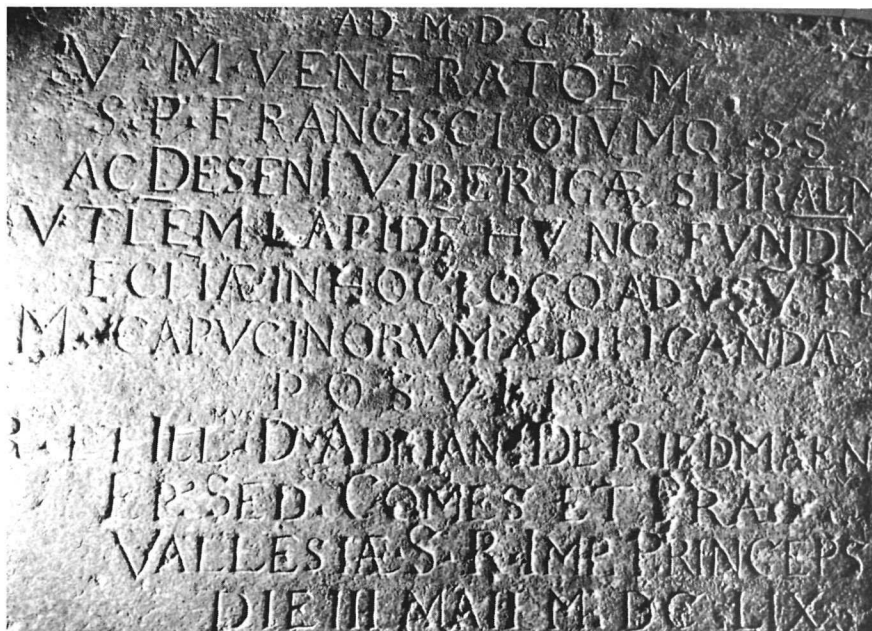 AD · M · D · G ·
V · M · VENERATOEM
S · P · FRANCISCI OIVMQ · S · S
AC DESENI V · IBERIGÆ S HRALM
VTLEM LAPIDE HVNC FVNDM
ECLIÆ IN HOC LOCO AD VSV FF
M · CAPVCINORVM ÆDIFICANDÆ
POSVIT
R · ET ILL · D · ADRIAN · DE RIEDMAEN
EP · SED · COMES ET PRAE
VALLESIÆ S · R · IMP PRINCEPS
DIE III MAII M · DC · LIX